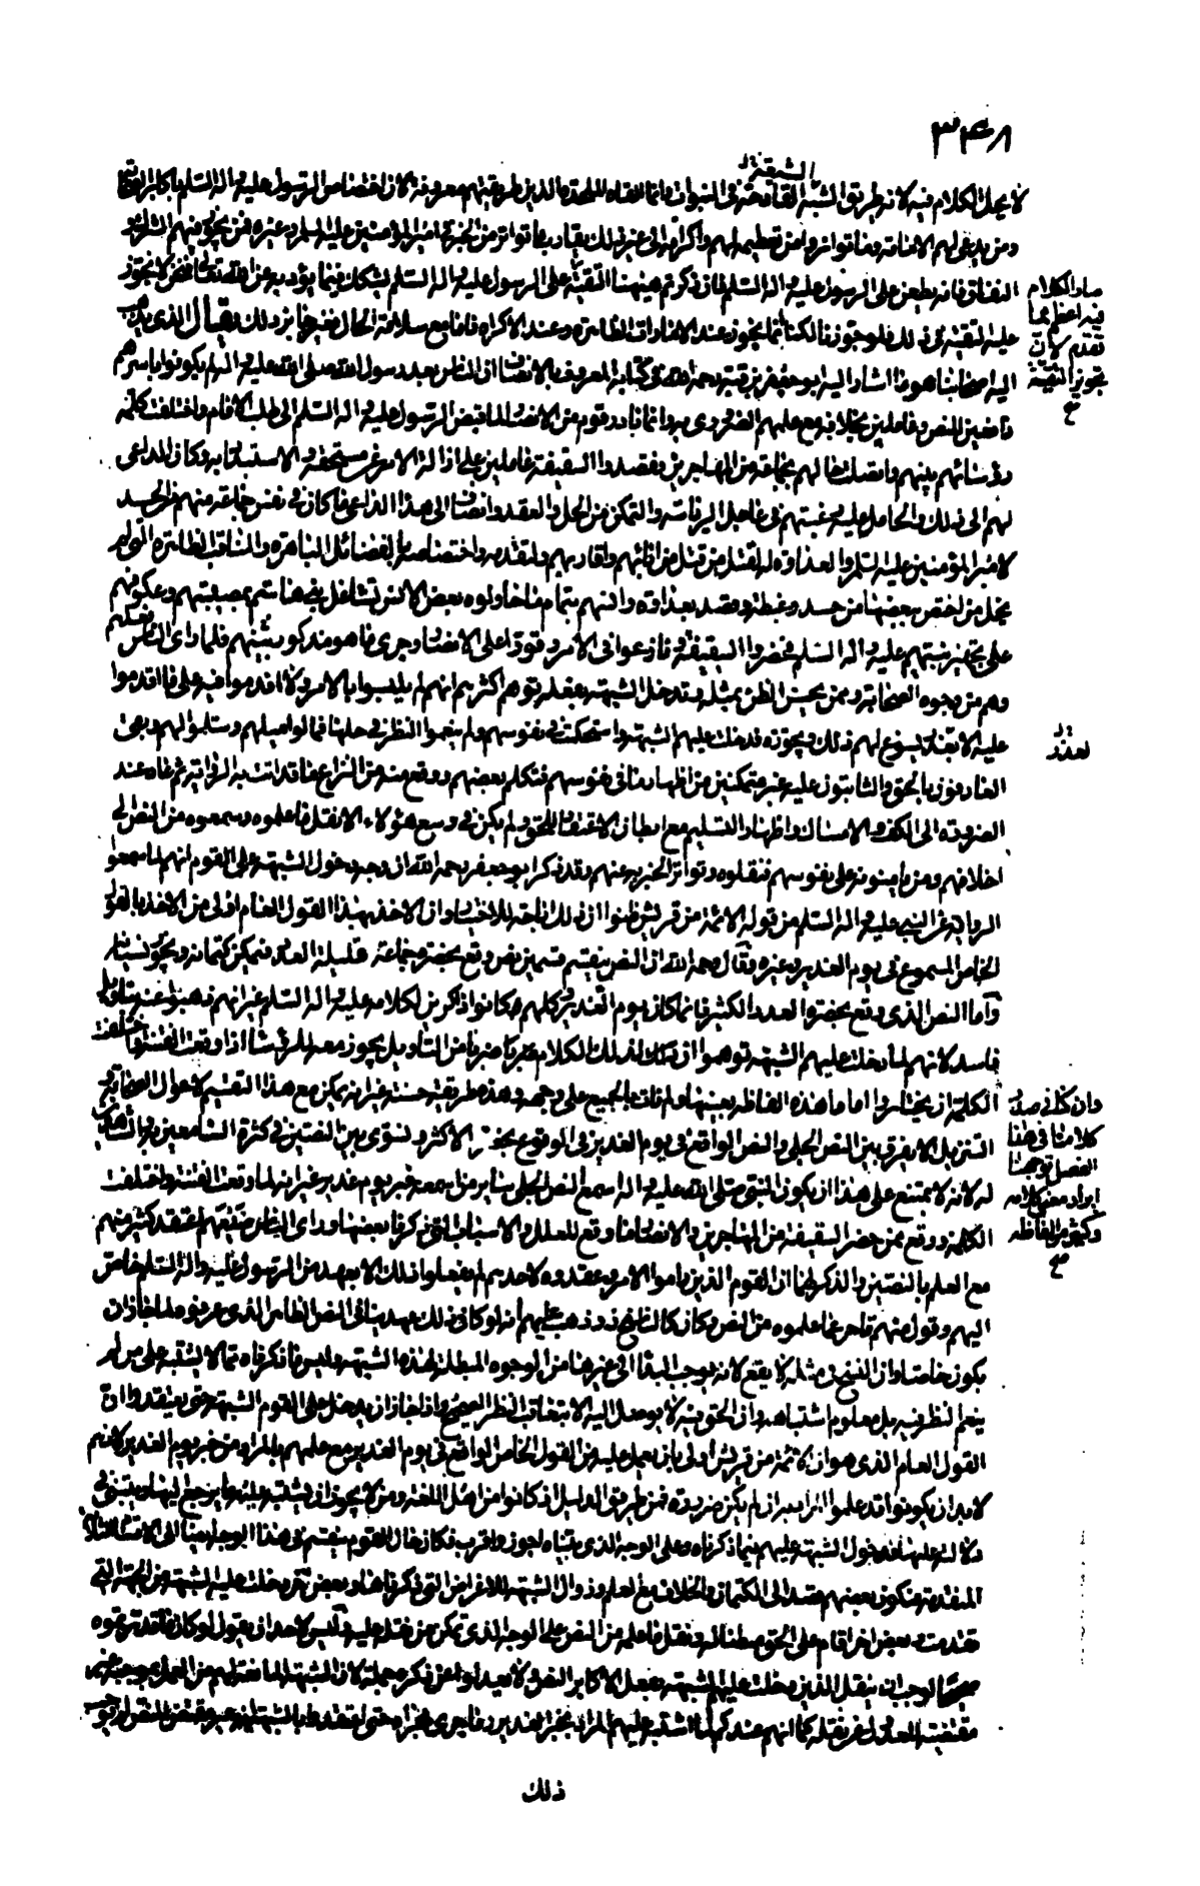 ٣٤٨
الشيعة
لا يحل الكلام فيه لانه طريق الشبه القادحة فى النبوات وانما القاه الملحدة الذين طريقتهم معروفة لان اختصاص الرسول عليه واله السلم باكابر
ومن يدعى لهم الامامة وما تواتر من تعظيمه لهم واكرامه الى غير ذلك يقارب ما تواتر من الخبر فى امير المؤمنين عليه السلم وغيره فمن يجوز فيهم
النفاق فانه يطعن على الرسول عليه واله السلم فان ذكرتم هيهنا التقية على الرسول عليه واله السلم يشكك فيما يؤديه عن الله تعالى فنحن لا نجوز
عليه التقية فى ذلك فلو جوزنا لكنا انما نجوز عند الامارات الظاهرة وعند الاكراه فاما مع سلامة الحال فغير جايز ذلك يقال الذى يذهب
اليه اصحابنا هو ما اشار اليه ابو جعفر بن قبة رحمه الله فى كتابه المعروف بالانصاف ان الناس بعد رسول الله صلى الله عليه واله لم يكونوا باسرهم
دافعين للنص وعاملين بخلافه مع علمهم الضرورى به وانما بادر قوم من الانصار لما قبض الرسول عليه واله السلم الى طلب الامر واختلفت كلمة
رؤسائهم بينهم واتصلت حالهم بجماعة من المهاجرين فقصدوا السقيفة عاملين على ازالة الامر عن مستحقه والاستبداد به وكان الداعى
لهم الى ذلك والحامل عليه رغبتهم فى عاجل الرياسة والتمكن من الحل والعقد وانضاف الى هذا الداعى ما كان فى نفس جماعة منهم من الحسد
لامير المؤمنين عليه السلم والعداوة له لقتل من قتل من اقاربهم ولتقدمه واختصاصه بالفضائل الباهرة والمناقب الظاهرة التى لم
يخل من اختص ببعضها من حسد وغبطة وقصد بعداوة وانسهم بتمام ما حاولوه بعض الانس تشاغل بنى هاشم بمصيبتهم وعكوفهم
على تجهيز نبيهم عليه واله السلم فحضروا السقيفة ونازعوا فى الامر وقووا على الانصار وجرى ما هو مذكور بينهم فلما راى الناس فعلهم
وهم من وجوه الصحابة وممن يحسن الظن بمثله وتدخل الشبهة بفعله توهم اكثرهم انهم لم يلبسوا بالامر ولا اقدموا فيه على ما اقدموا
عليه الا بعذر يسوغ لهم ذلك ويجوزه فدخلت عليهم الشبهة واستحكمت فى نفوسهم ولم ينعموا النظر فى حلها فمالوا ميلهم وسلموا لهم وبقى
العارفون بالحق والثابتون عليه غير متمكنين من اظهار ما فى نفوسهم فتكلم بعضهم ووقع منه من النزاع ما قد اتت به الرواية ثم عاد عند
الضرورة الى الكف والامساك واظهار التسليم مع ابطان الاعتقاد للحق ولم يكن فى وسع هؤلاء الا نقل ما علموه وسمعوه من النص الى
اخلافهم ومن يامنونه على نفوسهم فنقلوه وتواتر الخبر به عنهم وقد ذكر ابو جعفر رحمه الله ان وجه دخول الشبهة على القوم انهم لما سمعوا
الرواية عن النبى عليه واله السلم من قوله الائمة من قريش ظنوا ان ذلك اباحة للاختيار وان الاخذ بهذا القول العام اولى من الاخذ بالقول
الخاص المسموع فى يوم الغدير وغيره وقال رحمه الله ان النص ينقسم قسمين نص وقع بحضرة جماعة قليلة العدد فيمكن كتمانه ويجوز نسيانه
واما النص الذى وقع بحضرة العدد الكثير فانما كان يوم الغدير كلهم كانوا ذاكرين لكلامه عليه واله السلم غير انهم ذهبوا عنه بتاويل
فاسد لانهم لما دخلت عليهم الشبهة توهموا ان لذلك الكلام ضربا من التاويل يجوز معه للرؤسا اذا وقعت الفتنة واختلفت
الكلمة ان يختاروا اماما هذه الفاظه بعينها ولم يات بالجميع على وجهه وهذه طريقة حسنة غير انه يمكن مع هذا التقسيم لاحوال الصحابة
التنزيل الا يفرق بين النص الجلى والنص الواقع فى يوم الغدير فى الوقوع بحضرة الاكثر ونسوى بين النصين فى كثرة السامعين والشاهدين
له لانه لا يمتنع على هذا ان يكون النبى صلى الله عليه واله اسمع النص الجلى سائر من اسمعه خبر يوم غدير غير انه لما وقعت الفتنة واختلفت
الكلمة ووقع ممن حضر السقيفة من المهاجرين والانصار ما وقع للعلل والاسباب التى ذكرنا بعضها وراى الناس صنيعهم اعتقد كثير منهم
مع العلم بالنصين والذكر لهما ان القوم الذين راموا الامر وعقدوه لاحدهم لم يفعلوا ذلك الا بعهد من الرسول عليه واله السلم خاص
اليهم وقول منهم تاخر عما علموه من النص وكان كالناسخ له وذهب عليهم انه لو كان ذلك عهد ينافى النص الظاهر الذى عرفوه لما جاز ان
يكون خاصا وان النسخ فى مثله لا يقع لانه يوجب البدا الى غير هذا من الوجوه المبطلة لهذه الشبهة وليس ما ذكرناه مما لا يشتبه على من لم
ينعم النظر فيه بل معلوم اشتباهه وان الحق فيه لا يوصل اليه الا بثاقب النظر الصحيح واذا جاز ان يدخل على القوم الشبهة حتى يعتقدوا ان
القول العام الذى هو ان الائمة من قريش اولى بان يعمل عليه من القول الخاص الواقع فى يوم الغدير مع علمهم بالمراد من خبر يوم الغدير لانهم
لا بد ان يكونوا قد علموا المراد به ان لم يكن ضرورة فمن طريق الدليل اذ كانوا من اهل اللغة ومن لا يجوز ان يشتبه عليه ما يرجع اليها
دلالته عليها فدخول الشبهة عليهم فيما ذكرناه وعلى الوجه الذى بيناه اجوز واقرب فكان حال القوم ينقسم فى هذا الوجه ايضا الى الاقسام الثلاثة
المتقدمة فيكون بعضهم عمد الى الكتمان والخلاف مع العلم وزوال الشبهة للاغراض التى ذكرناها وبعض اخر دخلت عليه الشبهة من الجهة التى
تقدمت وبعض اخر اقام على الحق مبطنا له ونقل ما علمه من النص على الوجه الذى تمكن من نقله عليه وليس لاحد ان يقول لو كان ما قدرتموه
صحيحا لوجب ان ينقل الذين دخلت عليهم الشبهة بفعل الاكابر النص ولا يعدلوا عن ذكره جملة لان الشبهة انما منعتهم من العمل بموجبه
مقتضية العدول عن نقله كما انهم عندكم لما اشتبه عليهم المراد بخبر الغدير وما جرى مجراه حتى اعتقدوا بالشبهة غير مقتضى النص لم يوجب
ذلك
صار الكلام
فيه اعظم مما
تقدم لان
تجويز التقية
صح
لعذر
وان كنا فى صدر
كلامنا فى هذا
الفصل توجهنا
ايراد معنى كلامه
وكثير من الفاظه
صح